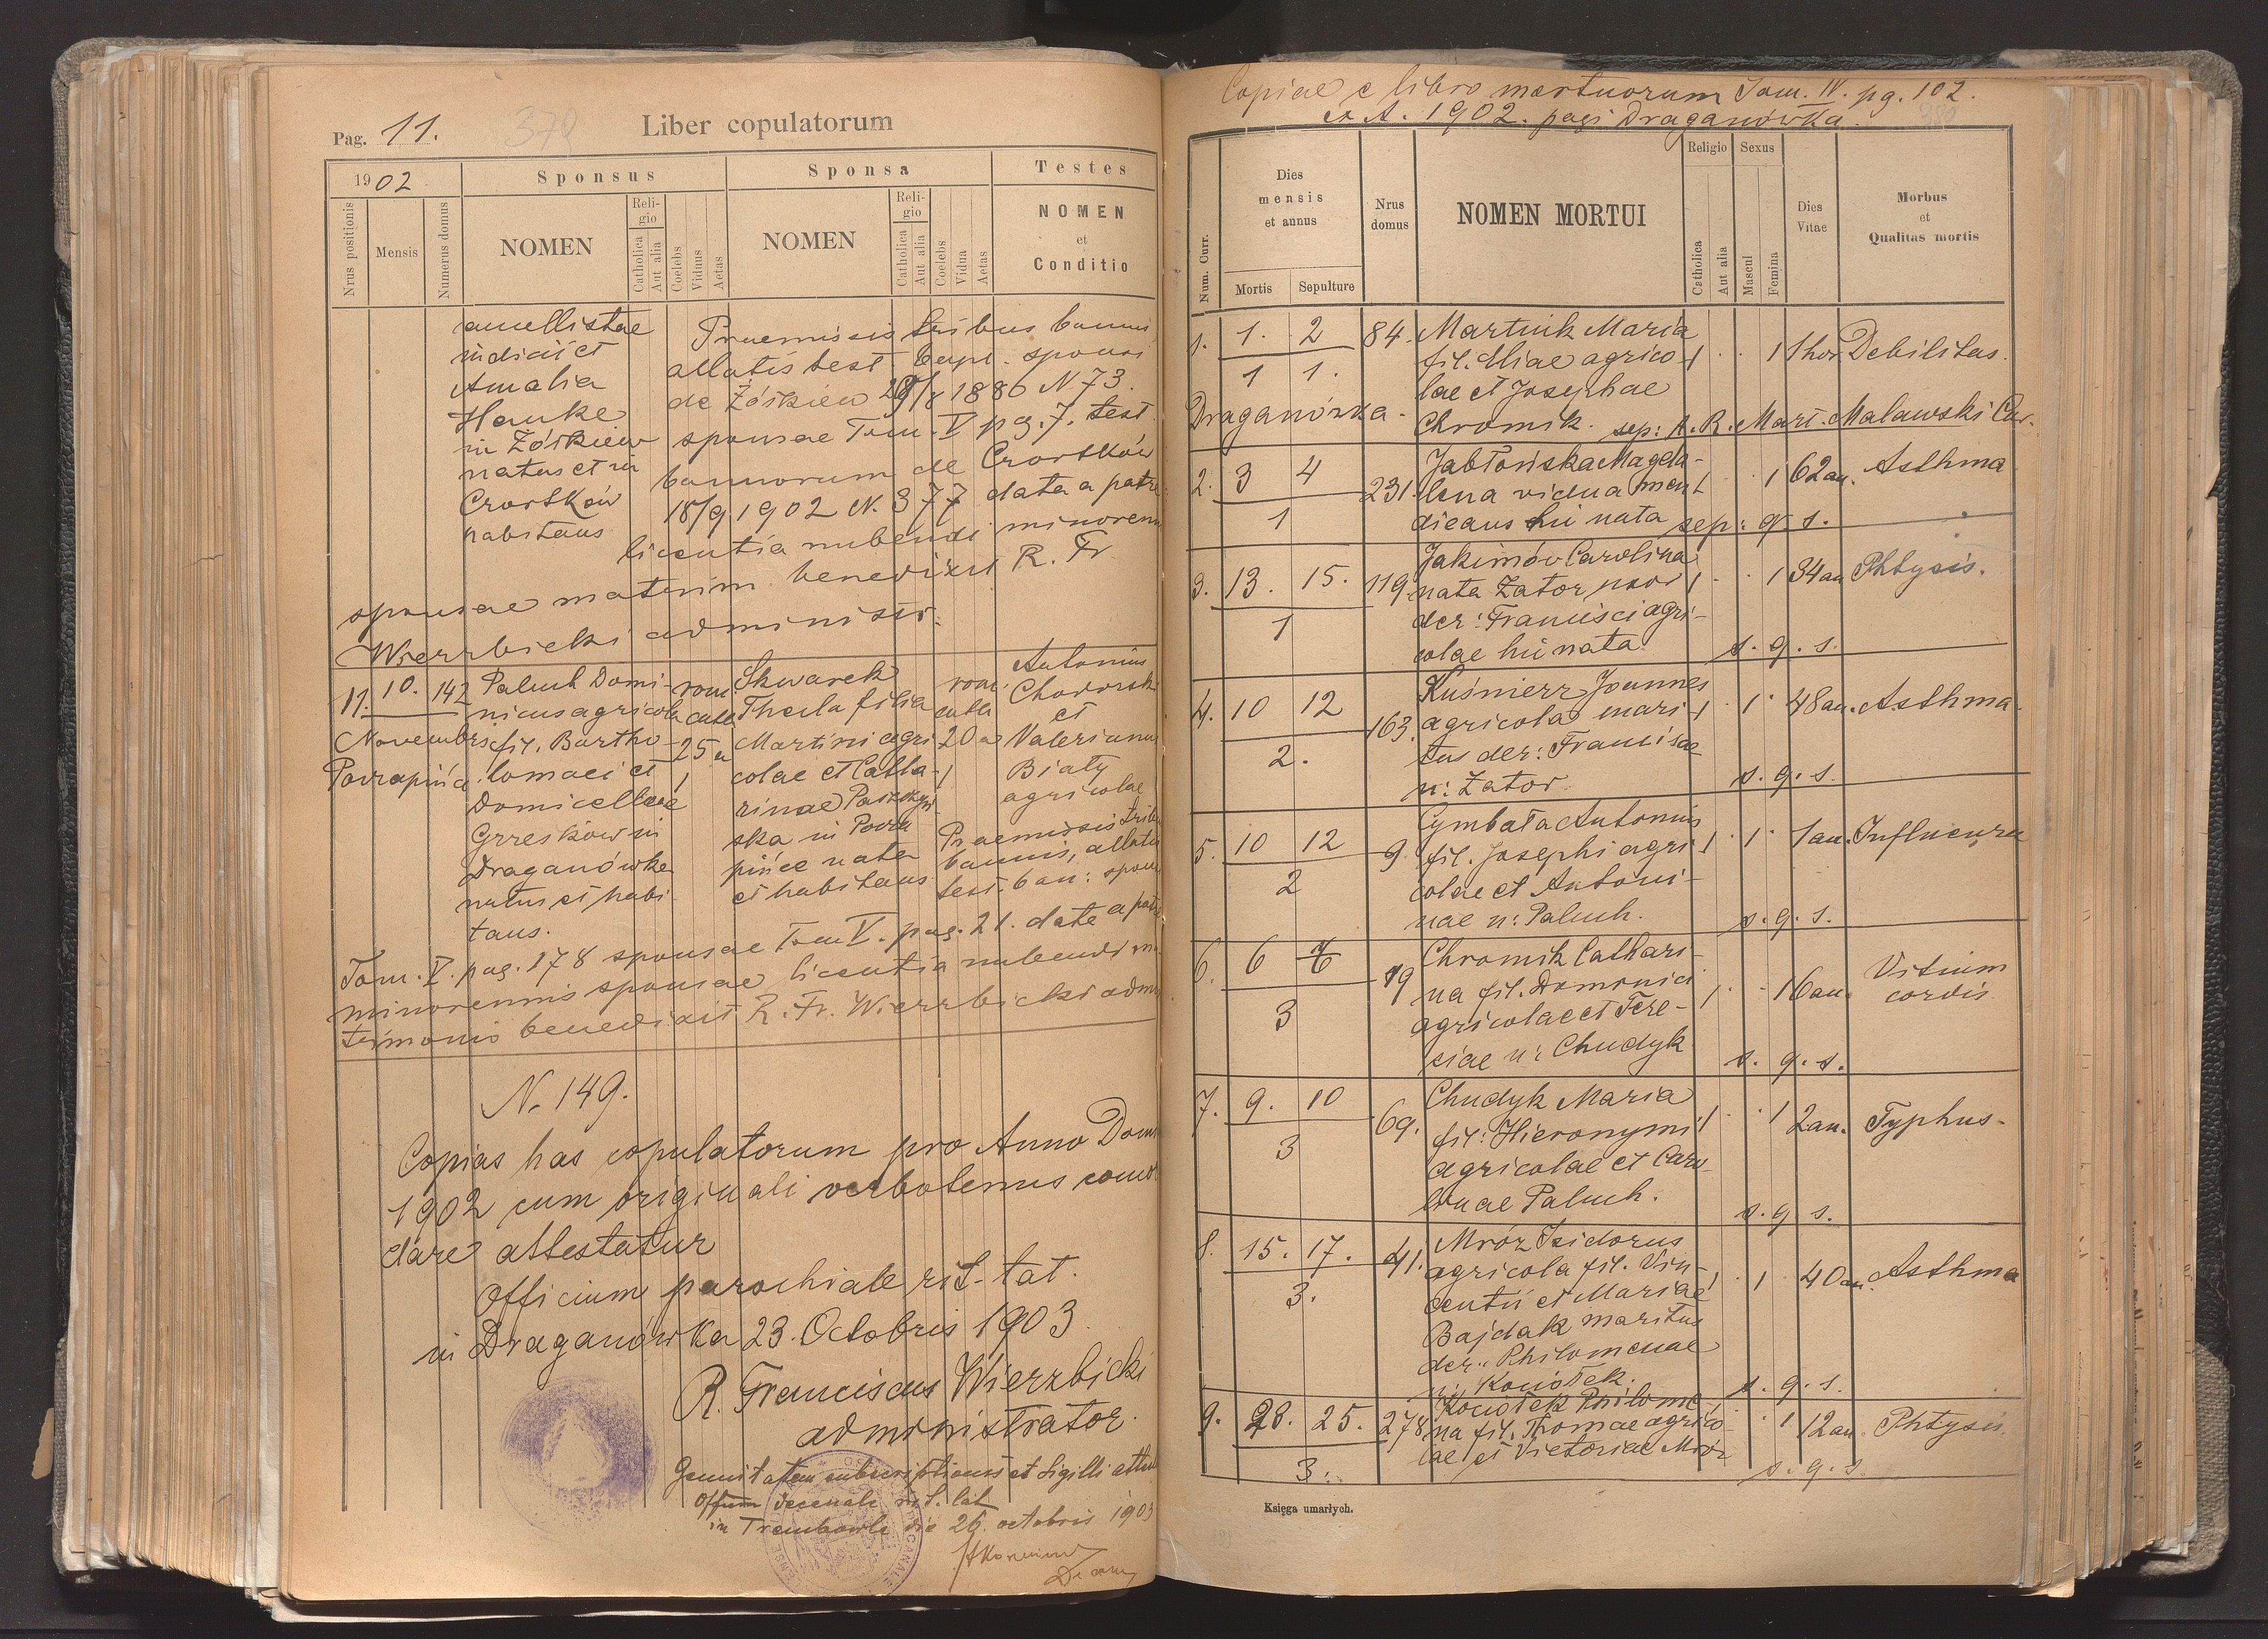 Pag. 11.
379
Liber copulatorum
1902
Sponsus
Sponsa
Testes
Nrus positionis
Mensis
Numerus domus
NOMEN
Reli-
gio
Catholica
Aut alia
Coelebs
Viduus
Aetas
NOMEN
Reli-
gio
Catholica
Aut alia
Coelebs
Vidua
Aetas
NOMEN
et
Conditio
Amalia
Hanke
in Żółkiew
natus et in
Czortków
habitans
Praemissis tribus bannis
allatis test. bapt. sponsi
de Żółkiew 1880 N. 73.
sponsae Tom. V pg. 7. test.
bannorum de Czortków
18/9 1902 N. 377 data a patre
licentia nubendi minorenni
sponsae matrim. benedixit R. Fr
Wierzbicki administr.
11. 10. 142
Novembris
Poczapińce
Paluch Domi-
nicus agricola
fil. Bartho-
lomaei et
Domicellae
Grzesków in
Draganówka
natus et habi
tans.
rom.
cath
25 a
1
Skwarek
Thecla filia
Martini agri
colae et Catha-
rinae
ska in Pocza
pińce nata
et habitans
rom.
cath
20 a
1
Antonius
Chodorski
et
Valerianus
Biały
agricolae
Praemissis tribus
bannis, allatis
test. ban: spons
Tom. V. pag. 178 sponsae Tom V. pag. 21. data a patre
minorennis sponsae licentia nubendi ma
trimonio benedixit R. Fr. Wierzbicki adm
N. 149.
Copias has copulatorum pro Anno Domi
1902 cum originali verbotenus concor
dare attestatur
Officium parochiale rit. lat.
in Draganówka 23. Octobris 1903
R. Franciscus Wierzbicki
administrator.
Genuitatem subscriptionis et sigilli attest
Offium decanale rit. lat
in Trembowla die 26. octobris 1903
Copiae e libro mortuorum Tom. IV. pg. 102.
ex A. 1902. pagi Draganówka.
Num. Curr.
Dies
mensis
et annus
Mortis
Sepulture
Nrus
domus
NOMEN MORTUI
Religio
Catholica
Aut alia
Sexus
Mascul
Femina
Dies
Vitae
Morbus
et
Qualitas mortis
1. 1. 2 84. Martinik Maria
fil. Eliae agrico- 1 1 1 hor. Debilitas.
1 1. lae et Josephae
Draganówka. Chromik. sep: A. R. Mart. Malawski Cur.
2. 3 4 231. Jabłońska Magda-
lena vidua men 1 1 62 an. Asthma
1 dicans hii nata sep: q. s.
3. 13. 15. 119. Jakimów Carolina
nata Zator uxor 1 1 34 an Phtysis.
1 der: Francisci agri-
colae hii nata s. q. s.
4. 10 12 163. Kuśnierz Joannes
agricola mari- 1 1 48 an. Asthma.
2. tus der: Franciscae
n: Zator. s. q. s.
5. 10 12 9. Cymbała Antonius
fil. Josephi agri 1 1 1 an. Influenza
2 colae et Antoni-
nae n: Paluch. s. q. s.
6. 6 7 19 Chromik Cathari-
na fil. Dominici 1 16 an. Vitium cordis
3 agricolae et Tere-
siae n: Chudyk s. q. s.
7. 9. 10 69. Chudyk Maria
fil: Hieronymi 1 1 2 an. Typhus-
3 agricolae et Caro-
linae Paluch. s. q. s.
8. 15. 17. 41. Mróz Isidorus
agricola fil. Vin- 1 1 40 an. Asthma
3. centii et Mariae
Bajdak maritus
der: Philomenae
n: Konotek. s. q. s.
9. 28. 25. 278 Konotek Philome
na fil. Thomae agrico 1 12 an. Phtysis
3. lae et Victoriae Mróz s. q. s.
Księga umarłych.